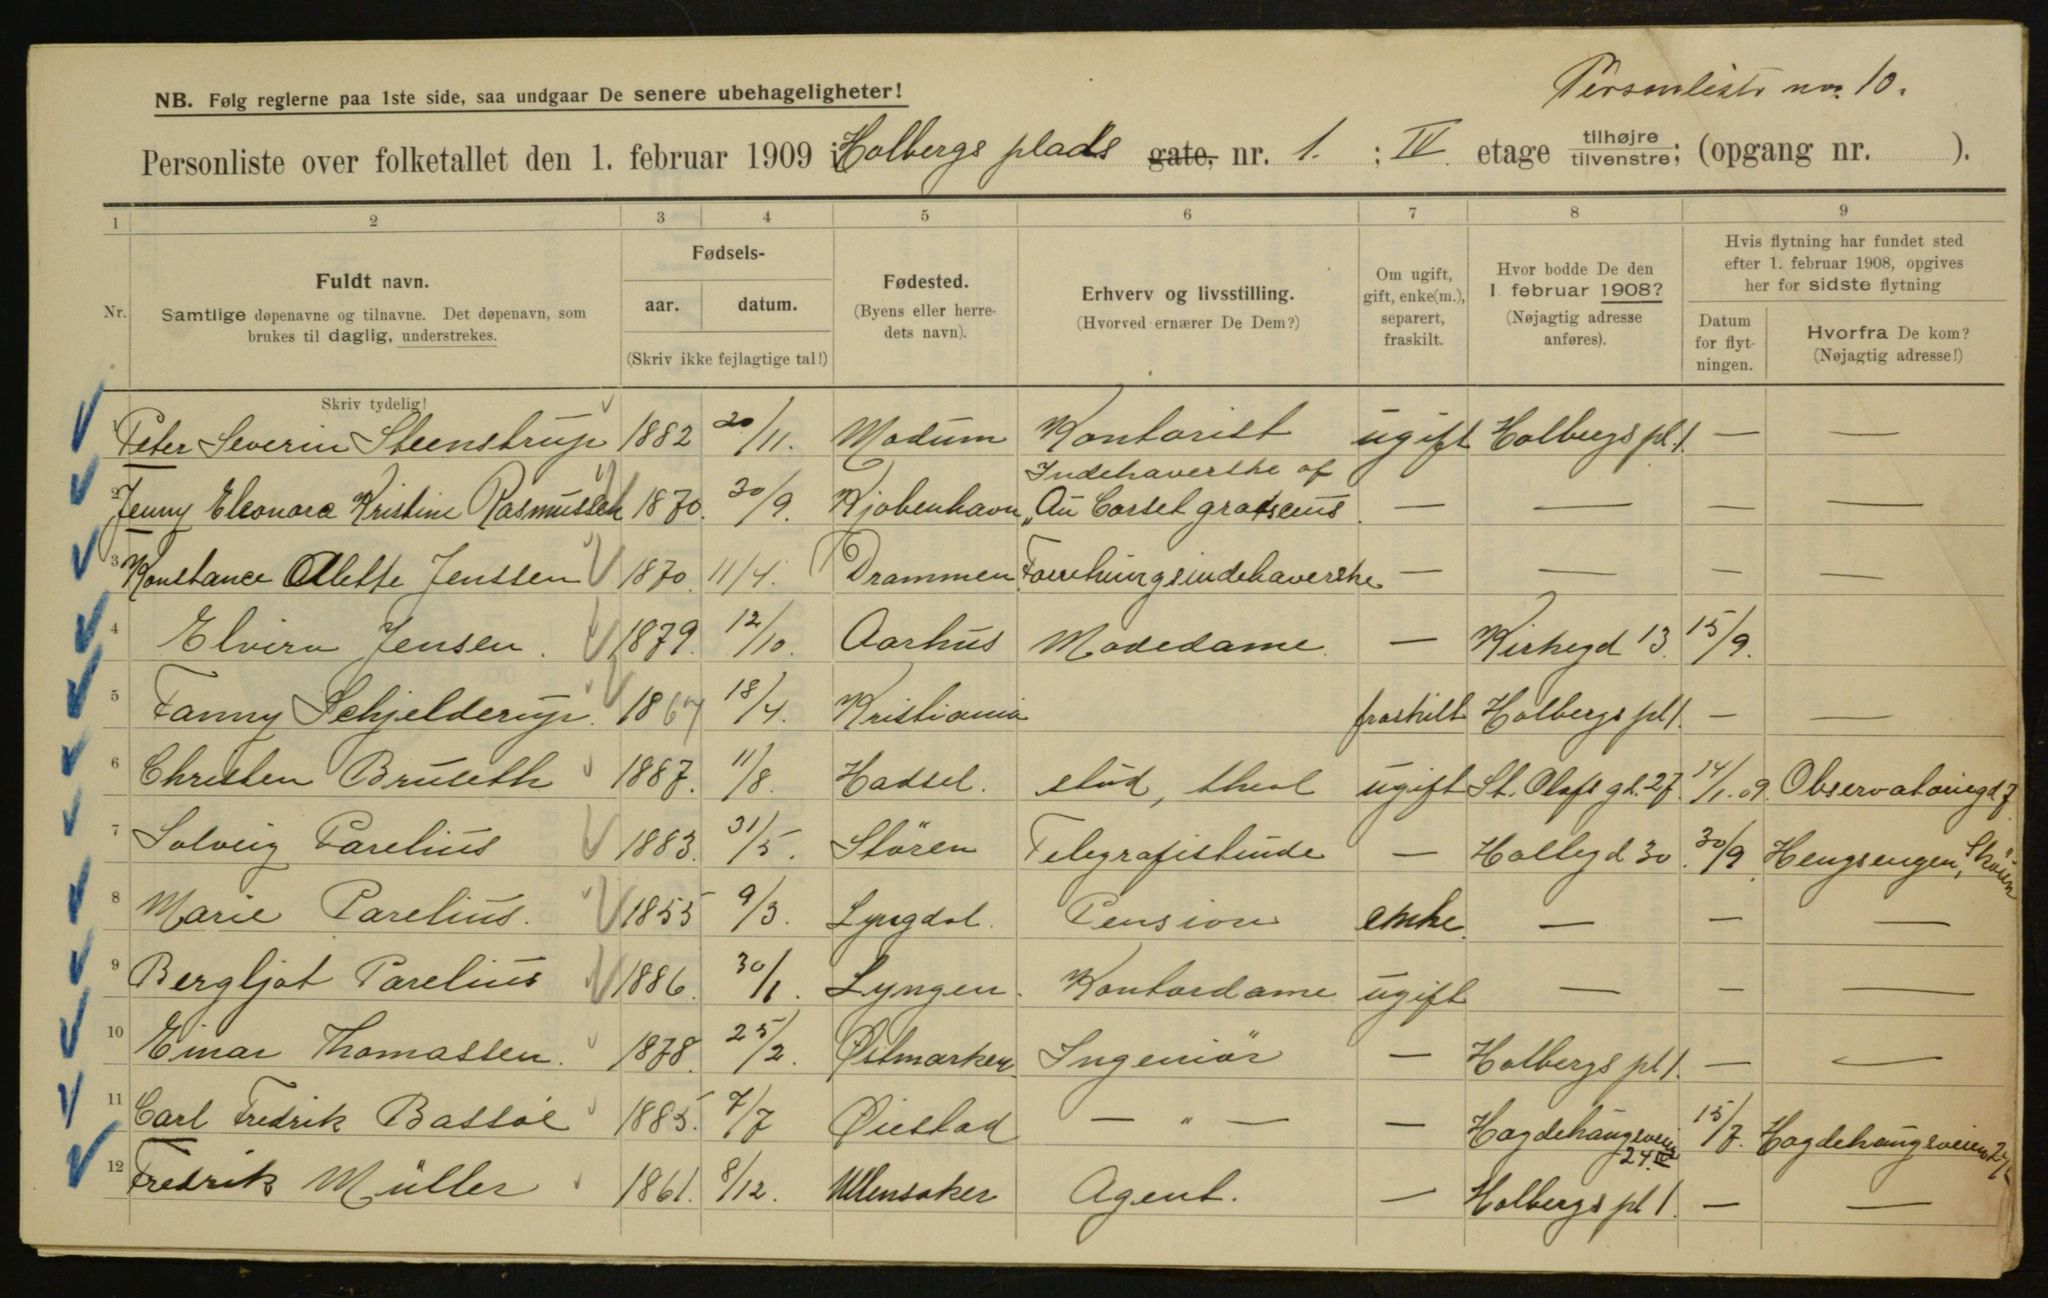 Personliste nr. 10.
NB. Følg reglerne paa 1ste side, saa undgaar De senere ubehageligheter!
Personliste over folketallet den 1. februar 1909 i Holbergs plads gate, nr. 1. ; IV etage tilhøjre tilvenstre; (opgang nr. ).
1 2 3 4 5 6 7 8 9
Nr.
Fuldt navn.
Samtlige døpenavne og tilnavne. Det døpenavn, som
brukes til daglig, understrekes.
Skriv tydelig!
Fødsels-
aar. datum.
(Skriv ikke fejlagtige tal!)
Fødested.
(Byens eller herre-
dets navn).
Erhverv og livsstilling.
(Hvorved ernærer De Dem?)
Om ugift,
gift, enke(m.),
separert,
fraskilt.
Hvor bodde De den
1 februar 1908?
(Nøjagtig adresse
anføres).
Hvis flytning har fundet sted
efter 1. februar 1908, opgives
her for sidste flytning
Datum
for flyt-
ningen.
Hvorfra De kom?
(Nøjagtig adresse!)
1 Peter Severin Steenstrup 1882 20/11. Modum Kontorist ugift Holbergs pl. 1. — —
2 Jenny Eleonora Kristine Rasmussen 1870. 30/9. Kjøbenhavn Indehaverske af „Au Corset — — — —
3 Konstance Alette Jenssen 1870 11/4. Drammen Forretningsindehaverske — — — —
4 Elvira Jensen. 1879. 12/10. Aarhus Modedame. — Kirkegd 13. 15/9.
5 Fanny Schjelderup. 1867 18/4. Kristiania fraskilt Holbergs pl 1. — —
6 Christen Bruseth 1887. 11/8. Hadsel. stud, theol ugift St. Olafs gd. 27. 14/1.09. Observatoriegd 7.
7 Solveig Parelius 1883. 31/5. Stören Telegrafistinde — Holtegd 30. 30/9. Hengsengen, Skøien
8 Marie Parelius. 1855 9/3. Lyngdal. Pension enke. — — —
9 Bergljot Parelius 1886. 30/1. Lyngen. Kontordame ugift — — —
10 Einar Thomassen. 1878. 25/2. Østmarken. Ingeniör — Holbergs pl 1. — —
11 Carl Fredrik Bassøe 1885. 7/7 Øiestad — " — — Hægdehaugsveien 24 IV 15/7. Hægdehaugsveien 24
12 Fredrik Müller 1861. 8/12. Ullensaker Agent. — Holbergs pl 1. — —